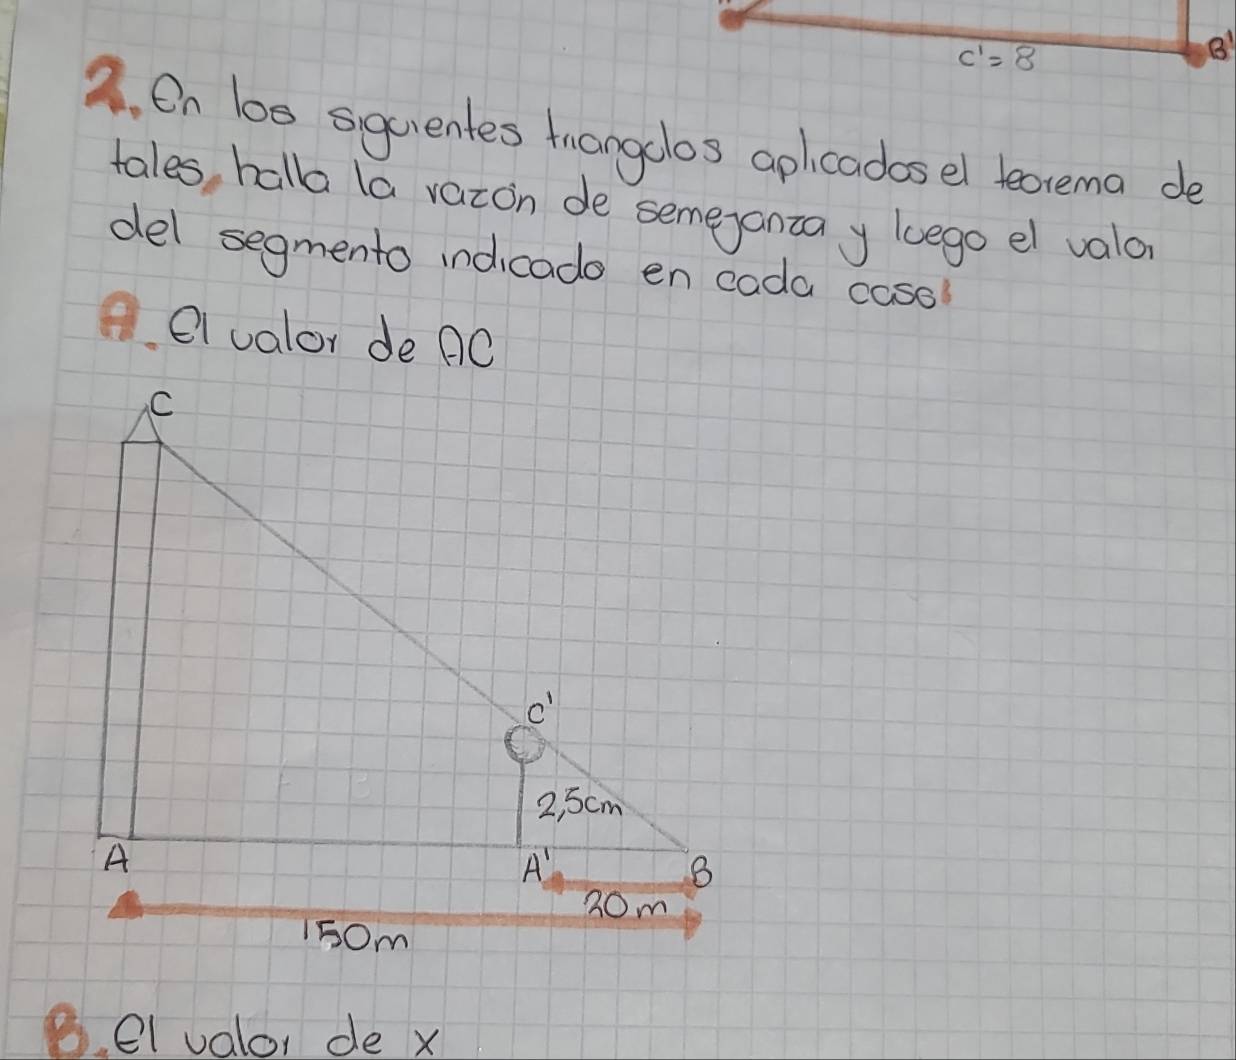 c'= 8
B'
2. En los siguientes triangulos aplicados el teorema de
tales, halla la razón de semejanza y luego el valor
del segmento indicado en cada caso:
A. El valor de AC
C
C'
2,5cm
A
A'
B
20m
150m
B. El valor de x